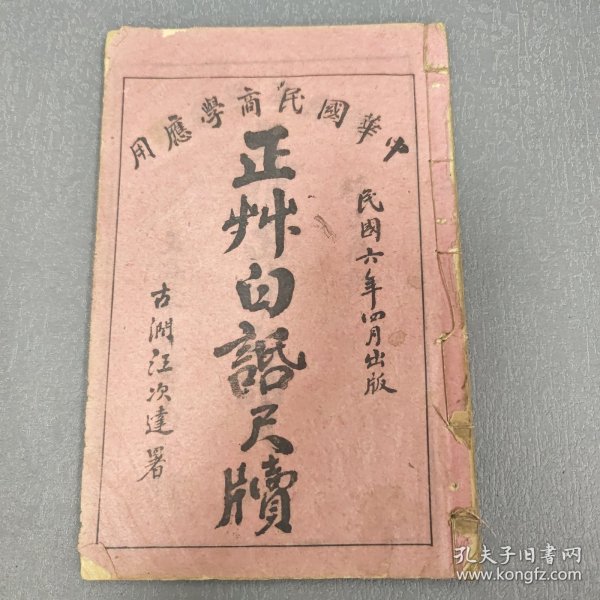 中華國民商學應用
民國六年四月出版
正艸白話尺牘
古潤汪次達署
孔夫子旧書网
www.kongfz.com